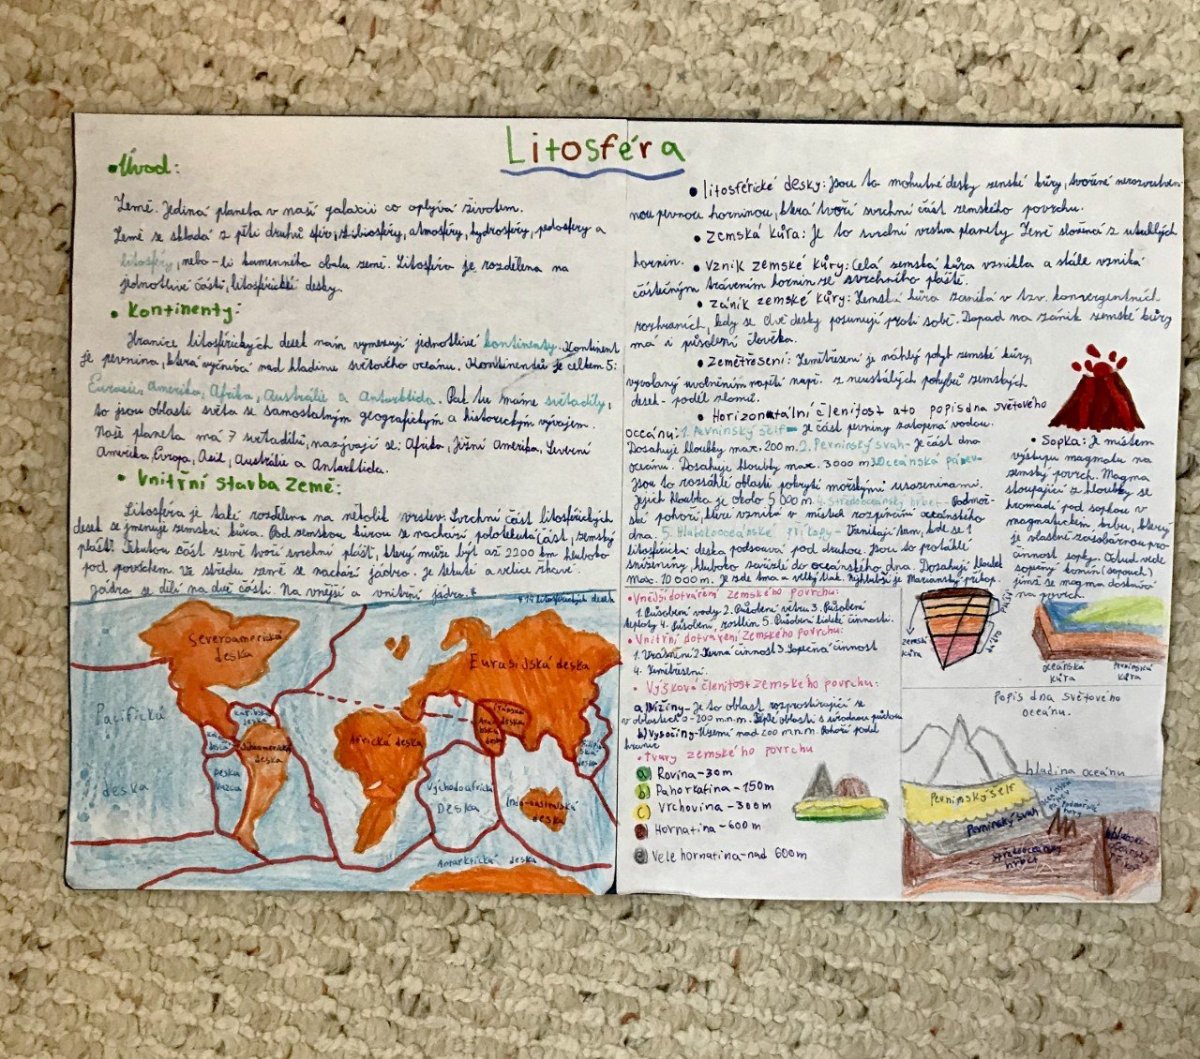 Litosféra
• Úvod:
Země. Jediná planeta v naší galaxii co oplývá životem.
Země se skládá z pěti druhů sfér, atmosféry, hydrosféry, pedosféry a
litosféry, nebo-li kamenného obalu země. Litosféra je rozdělena na
jednotlivé části, litosférické desky.
• Kontinenty:
Hranice litosférických desek nám vymezují jednotlivé kontinenty. Kontinent
je pevnina, která vyčnívá nad hladinu světového oceánu. Kontinentů je celkem 5:
Eurasie, Amerika, Afrika, Austrálie a Antarktida. Pak tu máme světadíly,
to jsou oblasti světa se samostatným geografickým a historickým vývojem.
Naše planeta má 7 světadílů, nazývají se: Afrika, Jižní Amerika, Severní
Amerika, Evropa, Asie, Austrálie a Antarktida.
• Vnitřní stavba Země:
Litosféra je také rozdělena na několik vrstev. Svrchní část litosférických
desek se jmenuje zemská kůra. Pod zemskou kůrou se nachází polotekutá část, zemský
plášť. Tekutou část země tvoří svrchní plášť, který může být až 2200 km hluboko
pod povrchem. Ve středu země se nachází jádro. Je tekuté a velice žhavé.
Jádro se dělí na dvě části. Na vnější a vnitřní jádro.
litosférických desek
Severoamerická
deska
Eurasijská deska
Pacifická
deska
Karibská
deska
Jihoamerická
deska
deska
Nazca
Africká deska
Arabská
deska
Východoafrická
Deska
Indo-australská
deska
Antarktická deska
• litosférické desky: Jsou to mohutné desky zemské kůry, tvořené
nou pevnou horninou, která tvoří svrchní část zemského povrchu.
• Zemská kůra: Je to svrchní vrstva planety Země složená z utuhlých
hornin.
• Vznik zemské kůry: Celá zemská kůra vznikla a stále vzniká
částečným tavením hornin ze svrchního pláště.
• Zánik zemské kůry: Zemská kůra zaniká v tzv. konvergentních
rozhraních, kdy se dvě desky posunují proti sobě. Dopad na zánik zemské kůry
má i působení člověka.
• Zemětřesení: Zemětřesení je náhlý pohyb zemské kůry,
vyvolaný uvolněním napětí např. z neustálých pohybů zemských
desek - podél zlomů.
• Horizontální členitost a to popis dna světového
oceánu: 1. Pevninský šelf - Je část pevniny zatopená vodou.
Dosahuje hloubky max. 200 m. 2. Pevninský svah - Je část dna
oceánu. Dosahuje hloubky max. 3000 m 3. Oceánská pánev -
Jsou to rozsáhlé oblasti pokryté mořskými usazeninami.
Jejich hloubka je okolo 5 000 m. 4. Středooceánský hřbet - Podmoř-
ské pohoří, které vzniká v místech rozpínání oceánského
dna. 5. Hlubokooceánské příkopy - Vznikají tam, kde se 1
litosférická deska podsouvá pod druhou. Jsou to protáhlé
sníženiny, hluboko zaříznuté do oceánského dna. Dosahují hloubek
max. 10 000 m. Je zde tma a velký tlak. Nejhlubší je Mariánský příkop.
• Sopka: Je místem
výstupu magmatu na
zemský povrch. Magma
stoupající z hloubky se
hromadí pod sopkou v
magmatickém krbu, který
je vlastně zásobárnou pro
činnost sopky. Odtud vede
sopečný komín (sopouch)
jímž se magma dostává
na povrch.
• Vnější dotváření zemského povrchu:
1. Působení vody 2. Působení větru 3. Působení
teploty 4. Působení rostlin 5. Působení lidské činnosti.
• Vnitřní dotváření Zemského povrchu:
1. Vrásnění 2. činnost 3. Sopečná činnost
4. Zemětřesení.
• Výšková členitost zemského povrchu:
a) Nížiny - Je to oblast rozprostírající se
v oblastech 0 - 200 m.n.m.
b) Vysočiny - Území nad 200 m.n.m. Pohoří podél
hranice
• tvary zemského povrchu
a) Rovina - 30 m
b) Pahorkatina - 150 m
c) Vrchovina - 300 m
Hornatina - 600 m
Velehornatina - nad 600 m
zemská
kůra
plášť
jádro
oceánská
kůra
pevninská
kůra
Popis dna světového
oceánu.
hladina oceánu
Pevninský šelf
Pevninský svah
Středooceánský
hřbet